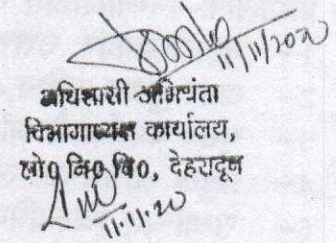 11/11/2020
अधिशासी अभियंता
विभागाध्यक्ष कार्यालय,
लो0 नि0 वि0, देहरादून
11.11.20